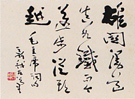 雄關漫道
真如鐵而今
邁步從頭
越
毛主席詞句